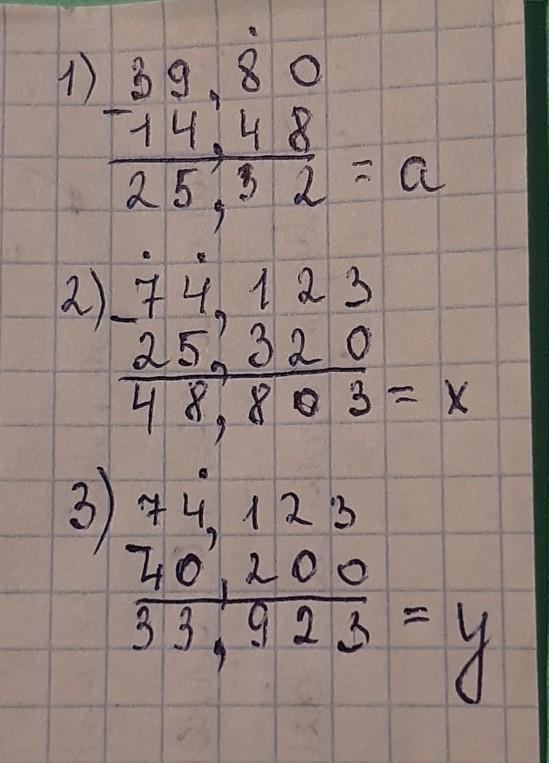 1) 39,80
- 14,48
25,32 = a
2) - 74,123
25,320
48,803 = x
3) 74,123
- 40,200
33,923 = y